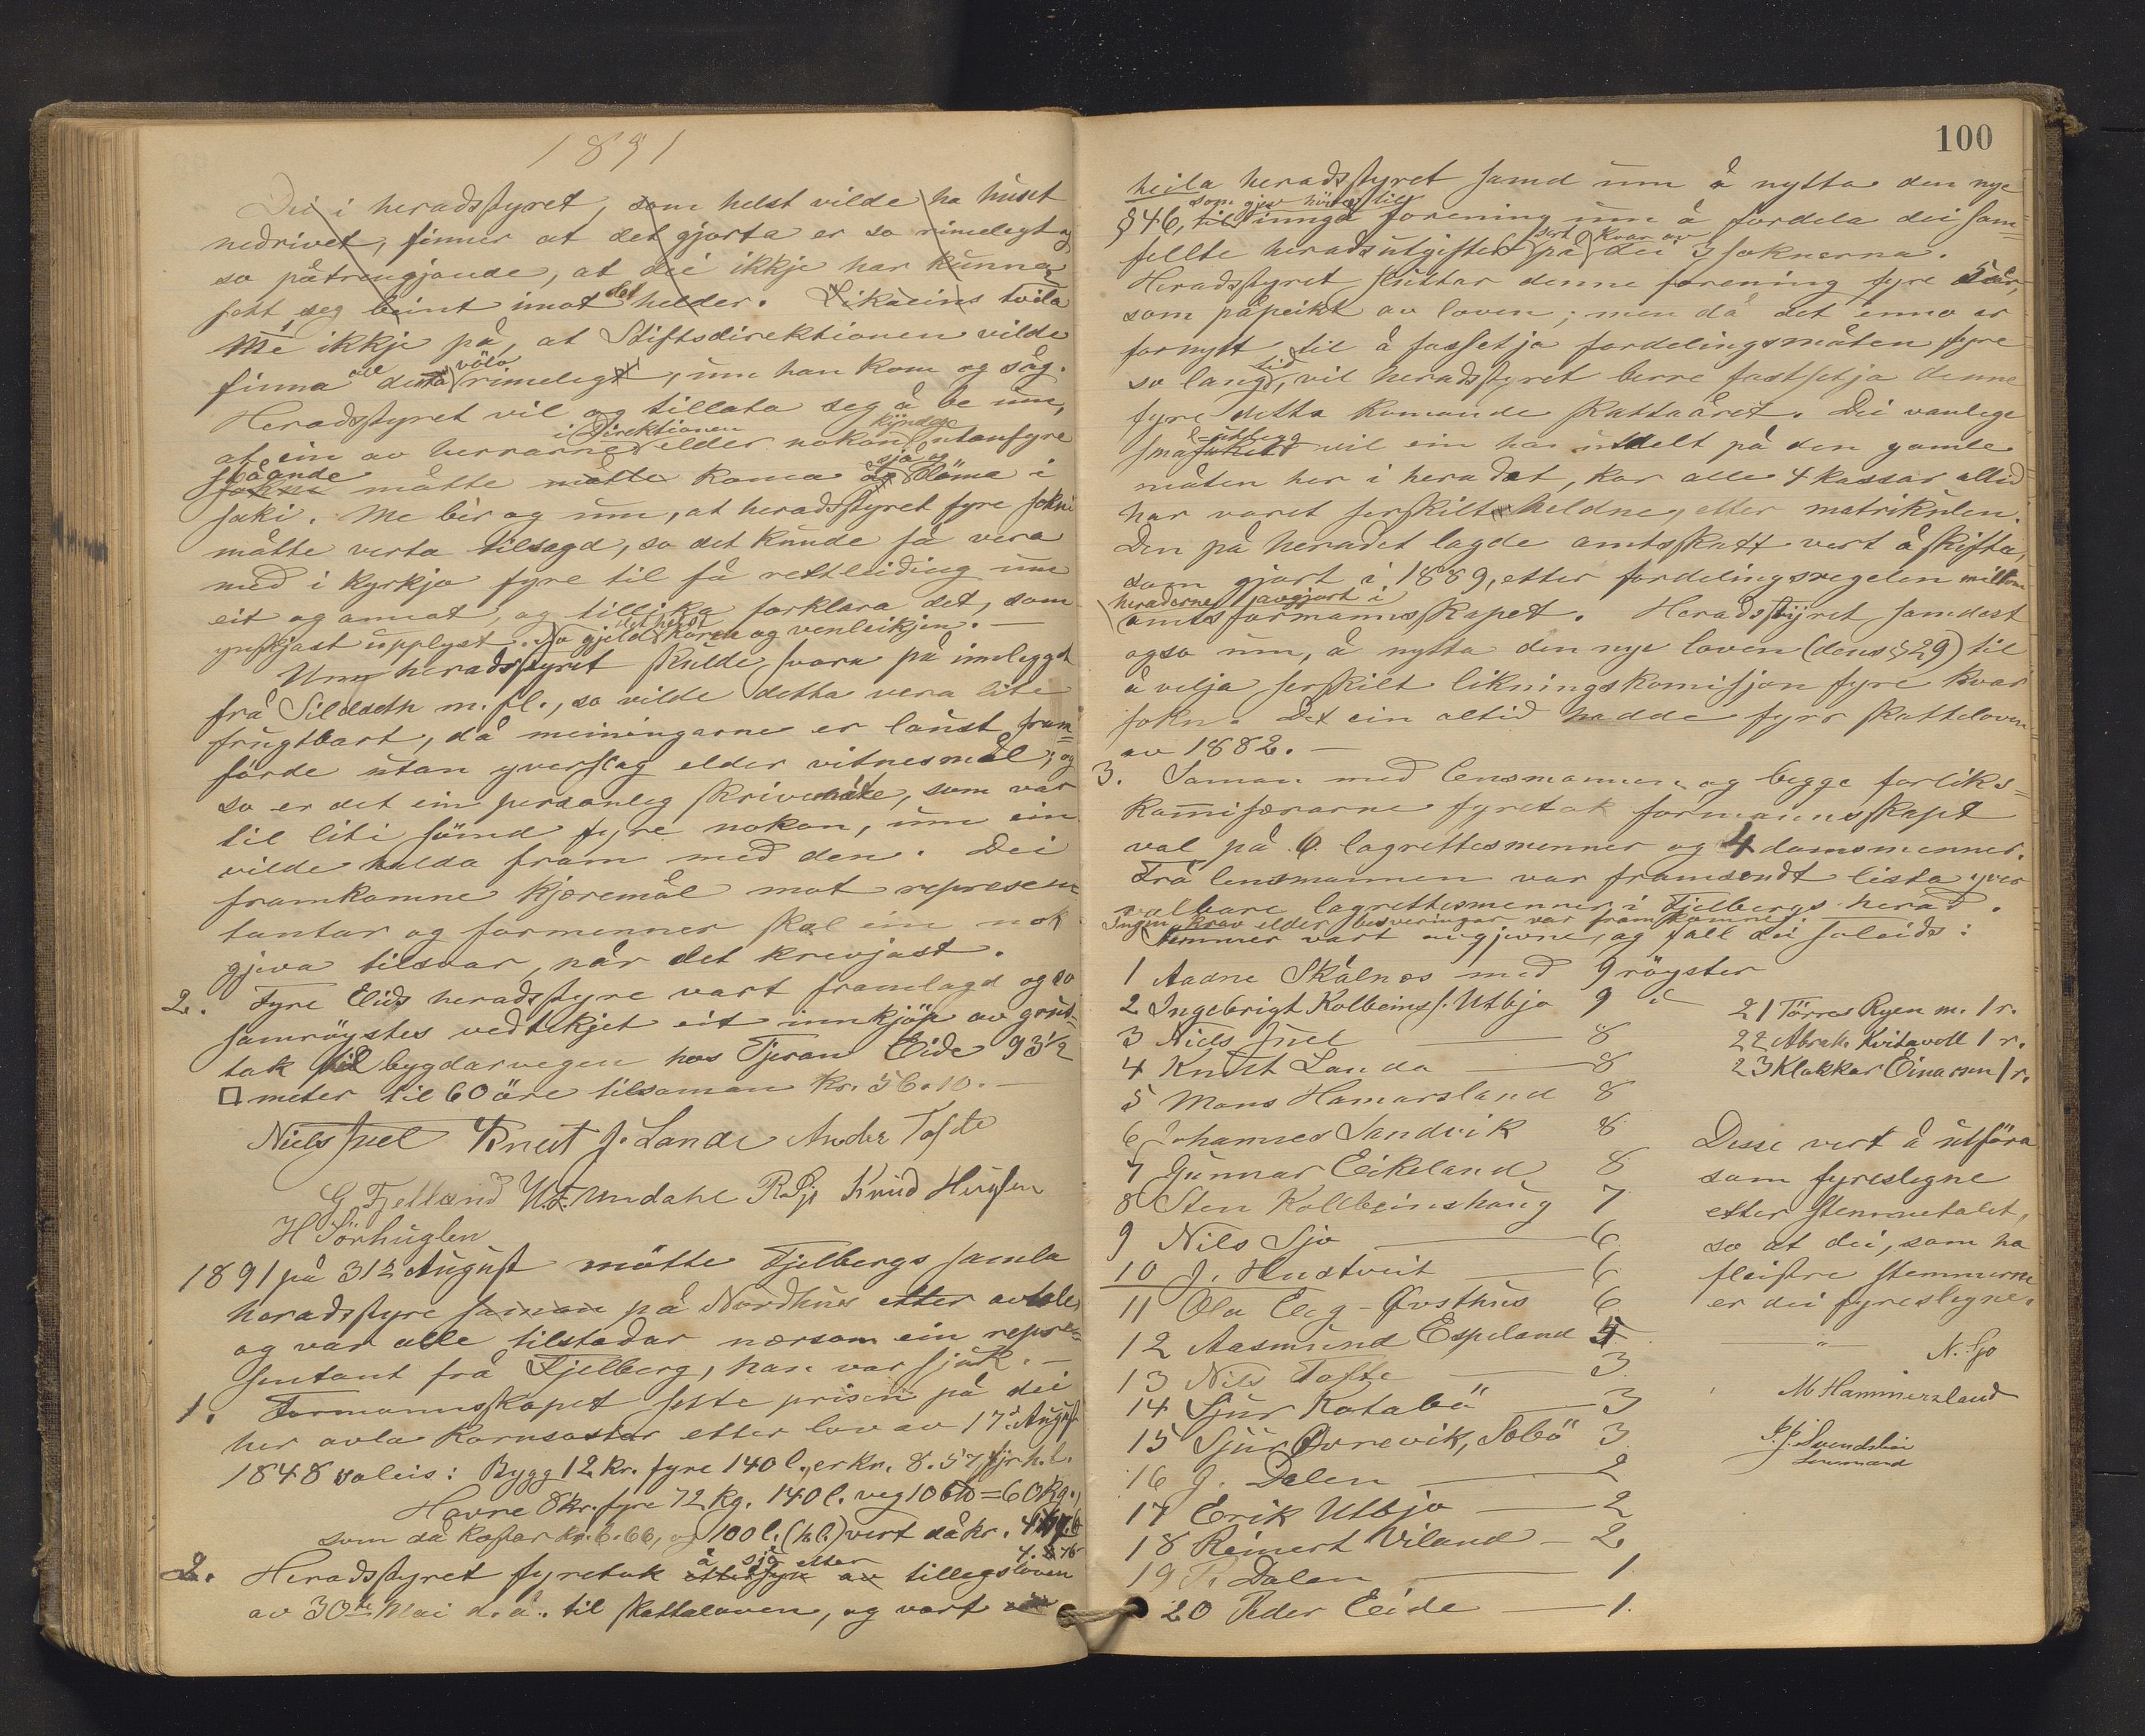 1891
Dei i heradsstyret, som helst vilde ha huset
nedrivet, finner at det gjorta er so rimelegt og
so påtrengjande, at dei ikkje har kunna
sett seg beint imot det helder. Likaeins tvila
Me ikkje på, at Stiftsdirektionen vilde
finna alt detta völo rimelegt, um han kom og såg.
Heradsstyret vil og tillata seg å be um,
at ein av herrarne i Direktionen elder nokon kyndog utanfyre
ståande måtte måtte koma sjå og og döma i
saki. Me bèr og um, at heradsstyret fyre sokni
måtte verta tilsagd, so det kunde få vera
med i kyrkja fyre til få rettleiding um
eit og annat, og tillika forklara det, som
ynskjast upplyst. So gjeld det helst koren og venleikjen. —
Um heradsstyret skulde svara på innlegget
frå Sildseth m. fl., so vilde detta vera lite
frugtbart, då meiningarne er laust fram=
förde utan yverslag elder vitnesmål; og
so er det ein personleg skrivemåte, som var
til liti sömd fyre nokon, um ein
vilde halda fram med den. Dei
framkomne kjæremål mot represen
tantar og formenner skal ein nok
gjeva tilsvar, når det krevjast.
2. Fyre Eids heradsstyre vart framlagd og so
samröystes vedtekjet eit innkjöp av grus-
tak til bygdarvegen hos Tjeran Eide 93½
□ meter til 60 öre tilsaman kr. 56.10. —
Niels Juel Knut J. Landa Andr Tofte
G Fjelland N. E. Undahl R Sjo Knud Huglen
H Sörhuglen
1891 på 31te August mötte Fjelbergs samla
heradsstyre saman på Nordhus etter avtale
og var alle tilstadar nærsom ein repre=
sentant frå Fjelberg, han var sjuk. —
1. Formannskapet sette prisen på dei
her avla kornsortar etter lov av 17de August
1848 soleis: Bygg 12 kr. fyre 140 l., er kr. 8.57 fyr h.l.
Havre 8 kr. fyre 72 kg. 140 l. veg 10 = 60 kg.,
som då kostar kr. 6.66, og 100 l. (h.l.) vert då kr.
4.76
2. Heradsstyret fyretok å sjå etter ettersyn av tillegsloven
av 30te Mai d. å. til skattaloven, og vart
100
heila heradsstyret samd um å nytta den nye
§ 46, som gjev höve til til inngå forening um å fordela dei sam=
fellte heradsutgifter sert på kvar av dei 3 soknerna.
Heradsstyret sluttar denne forening fyre 5 år,
som påpeikt av loven; men då det enno er
fornytt til å fastsetja fordelingsmåten fyre
so lang tid, vil heradsstyret berre fastsetja denne
fyre detta komande skattaåret. Dei vanlege
små utlegg vil ein ha utdelt på den gamle
måten her i heradet, kor alle 4 kassar altid
har voret serskilt heldne, etter matrikulen.
Den på heradet lagde amtsskatt vert å skifta,
som gjort i 1889, etter fordelingsregelen millom
heraderne avgjort i
amtsformannskapet. Heradsstyret samdest
ogso um, å nytta den nye loven (dens § 29) til
å velja serskilt likningskomisjon fyre kvar
sokn. Det ein altid hadde fyre skatteloven
av 1882. —
3. Saman med lensmannen og begge forliks=
komisærarne fyretok formannsskapet
val på 6 lagrettesmenner og 4 domsmenner.
Frå lensmannen var framsendt lista yver
valbare lagrettesmenner i Fjelbergs herad.
Ingen krav elder besveringar var framkomne.
Stemmer vart avgjevne, og fall dei soleids:
1 Aadne Skålnes med 9 röyster
2 Ingebrigt Kolbeinss. Utbjo 9 "
3 Niels Juel — 8
4 Knut Landa — 8
5 Mons Hamarsland 8
6 Johannes Sandvik 8
7 Gunnar Eikeland 8
8 Sten Kolbeinshaug 7
9 Nils Sjo — 6
10 J. Hustveit — 6
11 Ola Eeg-Övsthus 6
12 Aasmund Espeland 4
13 Nils Tofte — 3
14 Sjur Kotabö — 3
15 Sjur Övrevik, Solbö 3
16 J. Dalen — 2
17 Erik Utbjo — 2
18 Reinert Viland — 2
19 P. Dalen — 1
20 Peder Eide — 1.
21 Törres Ryen m. 1 r.
22 Abrah. Kvitavoll 1 r.
23 Klokkar Einarsen 1 r.
Desse vert å utföra
som fyreslegne
etter stemmetalet,
so at dei, som ha
fleistre stemmerne
er dei fyreslegne.
" N. Sjo
M Hammersland
Lensmand